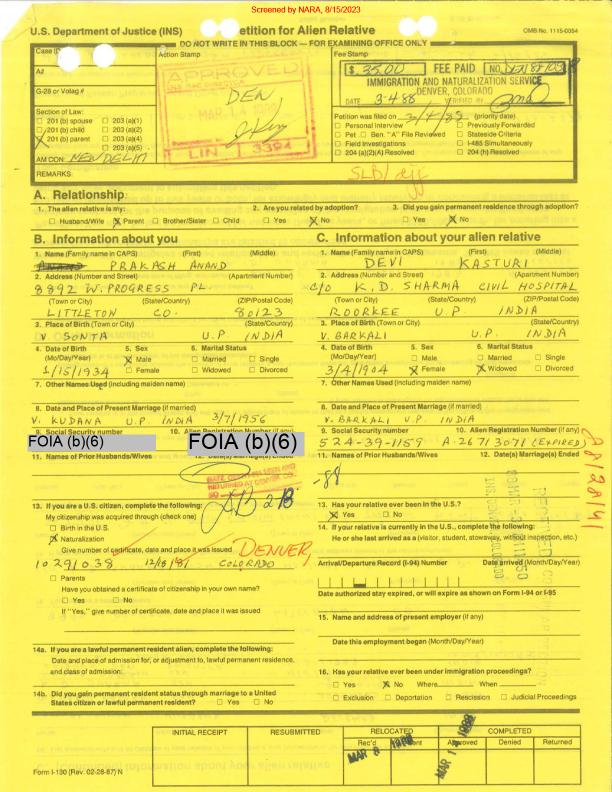 Screened by NARA, 8/15/2023
U.S. Department of Justice (INS) etition for Alien Relative OMB No. 1115-0054
DO NOT WRITE IN THIS BLOCK — FOR EXAMINING OFFICE ONLY
Case ID Action Stamp Fee Stamp
A#
G-28 or Volag #
APPROVED
DEN
LIN 3394
$ 35.00 FEE PAID NO.
IMMIGRATION AND NATURALIZATION SERVICE
DENVER, COLORADO
DATE 3-4-88 VERIFIED BY
Section of Law:
201 (b) spouse 203 (a)(1)
201 (b) child 203 (a)(2)
X 201 (b) parent 203 (a)(4)
203 (a)(5)
AM CON: NEW DELHI
Petition was filed on 3/4/88 (priority date)
Personal Interview Previously Forwarded
Pet. Ben. "A" File Reviewed Stateside Criteria
Field Investigations I-485 Simultaneously
204 (a)(2)(A) Resolved 204 (h) Resolved
REMARKS:
A. Relationship
1. The alien relative is my: 2. Are you related by adoption? 3. Did you gain permanent residence through adoption?
Husband/Wife X Parent Brother/Sister Child Yes X No Yes X No
B. Information about you
1. Name (Family name in CAPS) (First) (Middle)
PRAKASH ANAND
2. Address (Number and Street) (Apartment Number)
8892 W. PROGRESS PL
(Town or City) (State/Country) (ZIP/Postal Code)
LITTLETON CO. 80123
3. Place of Birth (Town or City) (State/Country)
V. SONTA U.P INDIA
4. Date of Birth 5. Sex 6. Marital Status
(Mo/Day/Year) X Male Married Single
1/15/1934 Female Widowed Divorced
7. Other Names Used (including maiden name)
8. Date and Place of Present Marriage (if married)
V. KUDANA U.P INDIA 3/7/1956
9. Social Security number 10. Alien Registration Number (if any)
FOIA (b)(6) FOIA (b)(6)
11. Names of Prior Husbands/Wives 12. Date(s) Marriage(s) Ended
13. If you are a U.S. citizen, complete the following:
My citizenship was acquired through (check one)
Birth in the U.S.
X Naturalization
Give number of certificate, date and place it was issued
DENVER,
10291038 COLORADO
Parents
Have you obtained a certificate of citizenship in your own name?
Yes No
If "Yes," give number of certificate, date and place it was issued
14a. If you are a lawful permanent resident alien, complete the following:
Date and place of admission for, or adjustment to, lawful permanent residence,
and class of admission:
14b. Did you gain permanent resident status through marriage to a United
States citizen or lawful permanent resident? Yes No
C. Information about your alien relative
1. Name (Family name in CAPS) (First) (Middle)
DEVI KASTURI
2. Address (Number and Street) (Apartment Number)
C/O K.D. SHARMA CIVIL HOSPITAL
(Town or City) (State/Country) (ZIP/Postal Code)
ROORKEE U.P INDIA
3. Place of Birth (Town or City) (State/Country)
V. BARKALI U.P. INDIA
4. Date of Birth 5. Sex 6. Marital Status
(Mo/Day/Year) Male Married Single
3/4/1904 X Female X Widowed Divorced
7. Other Names Used (including maiden name)
8. Date and Place of Present Marriage (if married)
V. BARKALI U.P INDIA
9. Social Security number 10. Alien Registration Number (if any)
524-39-1159 A-26713071 (EXPIRED)
11. Names of Prior Husbands/Wives 12. Date(s) Marriage(s) Ended
-88
13. Has your relative ever been in the U.S.?
X Yes No
14. If your relative is currently in the U.S., complete the following:
He or she last arrived as a (visitor, student, stowaway, without inspection, etc.)
Arrival/Departure Record (I-94) Number Date arrived (Month/Day/Year)
Date authorized stay expired, or will expire as shown on Form I-94 or I-95
15. Name and address of present employer (if any)
Date this employment began (Month/Day/Year)
16. Has your relative ever been under immigration proceedings?
Yes X No Where When
Exclusion Deportation Rescission Judicial Proceedings
INITIAL RECEIPT RESUBMITTED RELOCATED COMPLETED
Rec'd Sent Approved Denied Returned
MAR 8 1988 MAR 1 1988
Form I-130 (Rev. 02-28-87) N